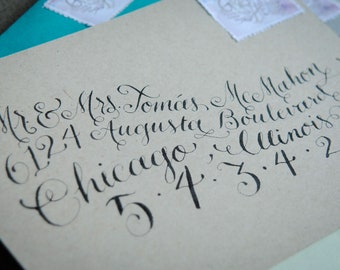 Mr. & Mrs. Tomás McMahon
6124 Augusta Boulevard
Chicago, Illinois
5·4·3·4·2